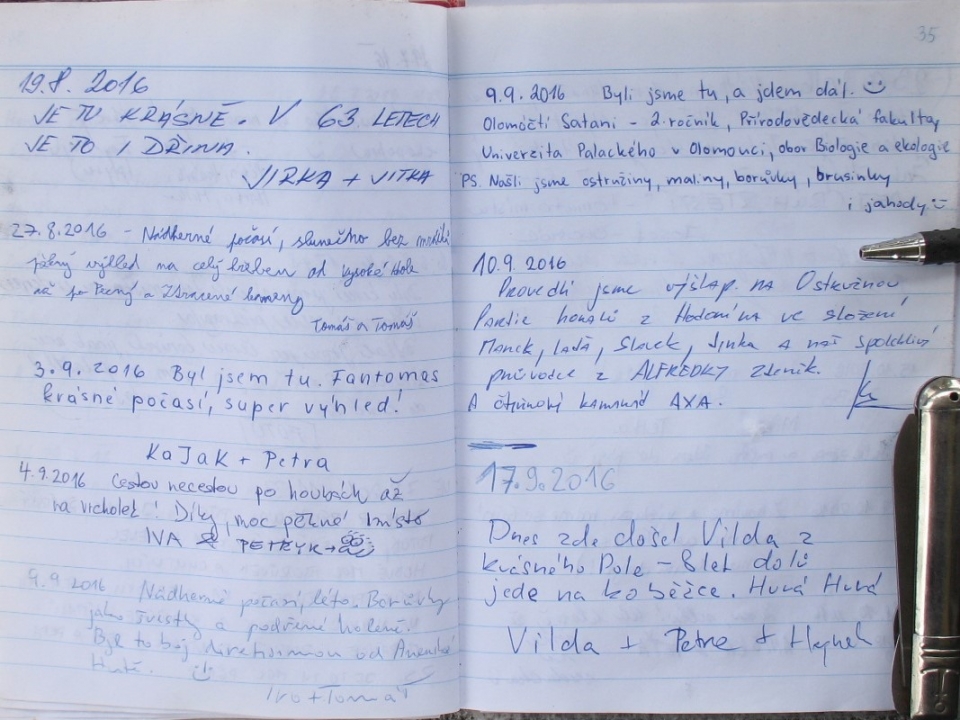 19.8. 2016
JE TU KRÁSNĚ. V 63 LETECH
JE TO I DŘINA.
JIRKA + VITKA
27.8.2016 - Nádherné počasí, slunečno bez
pěkný výhled na celý hřeben od Vysoké hole
až po Pecný a Ztracené kameny
Tomáš a Tomáš
3.9.2016 Byl jsem tu. Fantomas
krásné počasí, super výhled!
KaJaK + Petra
4.9.2016 Cestou necestou po houbách až
na vrcholek! Díky, moc pěkné místo
IVA & PETRYK +
9.9 2016 Nádherné počasí, léto. Borůvky
jako švestky a podřené holeně.
Byl to boj od
Hutě.
Ivo + Tomáš
35
9.9.2016 Byli jsme tu, a jdem dál. :)
Olomóčtí Satani - 2. ročník, Přírodovědecká fakulta,
Univerzita Palackého v Olomouci, obor Biologie a ekologie
PS. Našli jsme ostružiny, maliny, borůvky, brusinky
i jahody :)
10.9. 2016
Provedli jsme výšlap na Ostružnou
Partie horalů z Hodonína ve složení
Marek, Laďa, Slavek, Jirka a náš spolehlivý
průvodce z ALFREDKY Zdeník.
A čtyřnohý kamarád AXA.
17.9.2016
Dnes zde došel Vilda z
krásného Pole - 8 let dolů
jede na koběžce. Hurá Hurá
Vilda + Petra + Hynek